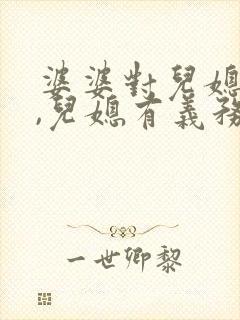 婆婆對兒媳
,兒媳有義務
一世卿黎